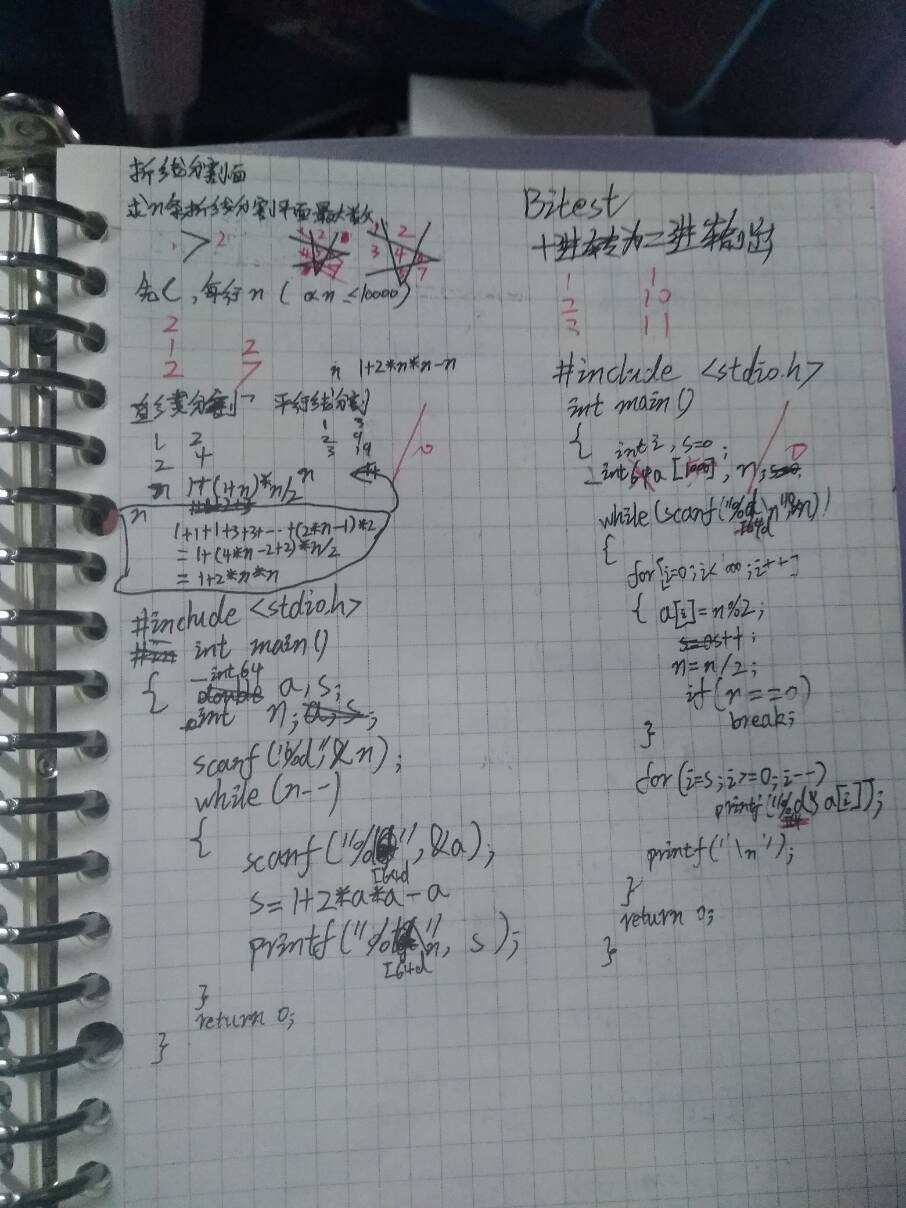 折线分割面
求n条折线分割平面最大数
1 > 2
1 2
3 4 6
5 7
先C,每行n ( 0<n≤10000)
2
1 2
2 7
n 1+2*n*n-n
直线分割 平行线分割
1 2
2 4
n 1+(1+n)*n/2
1 3
2 9
3 19
n
n
1+1+1+3+3+---+(2*n-1)*2
=1+(4*n-2+2)*n/2
=1+2*n*n
#include <stdio.h>
int main()
{ _int64 a,s;
int n; a,s;
scanf("%d",&n);
while(n--)
{
scanf("%I64d",&a);
s=1+2*a*a-a
printf("%I64d\n", s);
}
return 0;
}
Bitest
十进制转为二进制输出
1 1
2 10
3 11
#include <stdio.h>
int main()
{ int i,s=0;
_int64 a[100],n;
while(scanf("%I64d\n",&n))
{
for[i=0;i<100;i++]
{ a[i]=n%2;
s++;
n=n/2;
if(n==0)
break;
}
for(i=s;i>=0;i--)
printf("%d", a[i]);
printf("\n");
}
return 0;
}